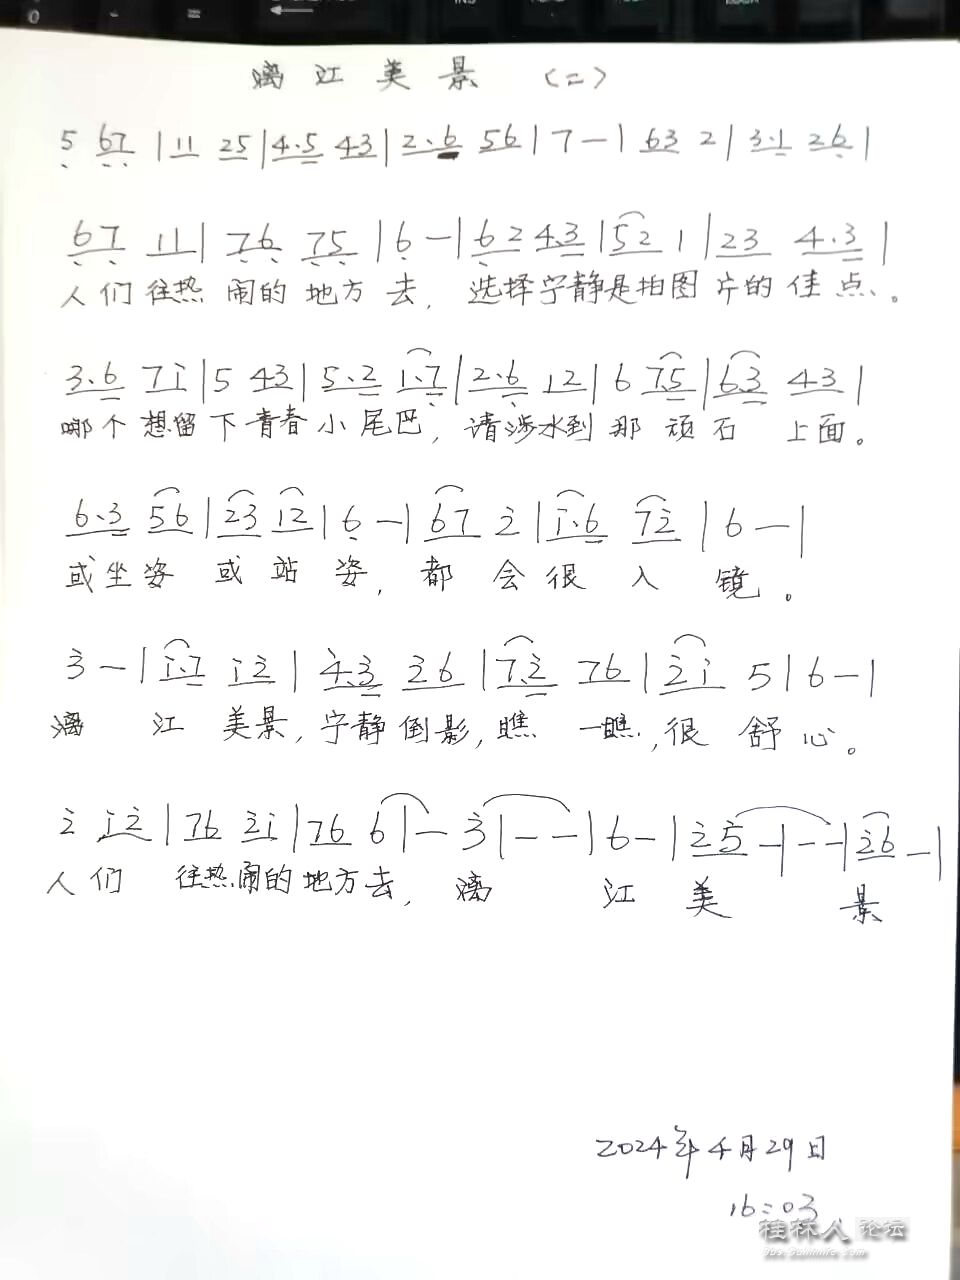 漓江美景 (二)
5 67 | 11 25 | 4.5 43 | 2.6 56 | 7 — | 63 2 | 3.1 26 |
67 11 | 76 75 | 6 — | 62 4.3 | 52 1 | 23 4.3 |
人们往热闹的地方去，选择宁静是拍图片的佳点。
3.6 7i | 5 43 | 5.2 1.7 | 2.6 12 | 6 7.5 | 6.3 43 |
哪个想留下青春小尾巴，请涉水到那顽石上面。
6.3 56 | 23 12 | 6 — | 67 2 | i.6 72 | 6 — |
或坐姿或站姿，都会很入镜。
3 — | i.7 i2 | 4.3 26 | 7.2 76 | 2i 5 | 6 — |
漓江美景，宁静倒影，瞧一瞧，很舒心。
2 i2 | 76 2i | 76 6 | — 3 | — — | 6 — | 25 — | — — | 26 — |
人们往热闹的地方去，漓江美景
2024年4月29日
16:03
桂林人论坛
bbs.guilinlife.com